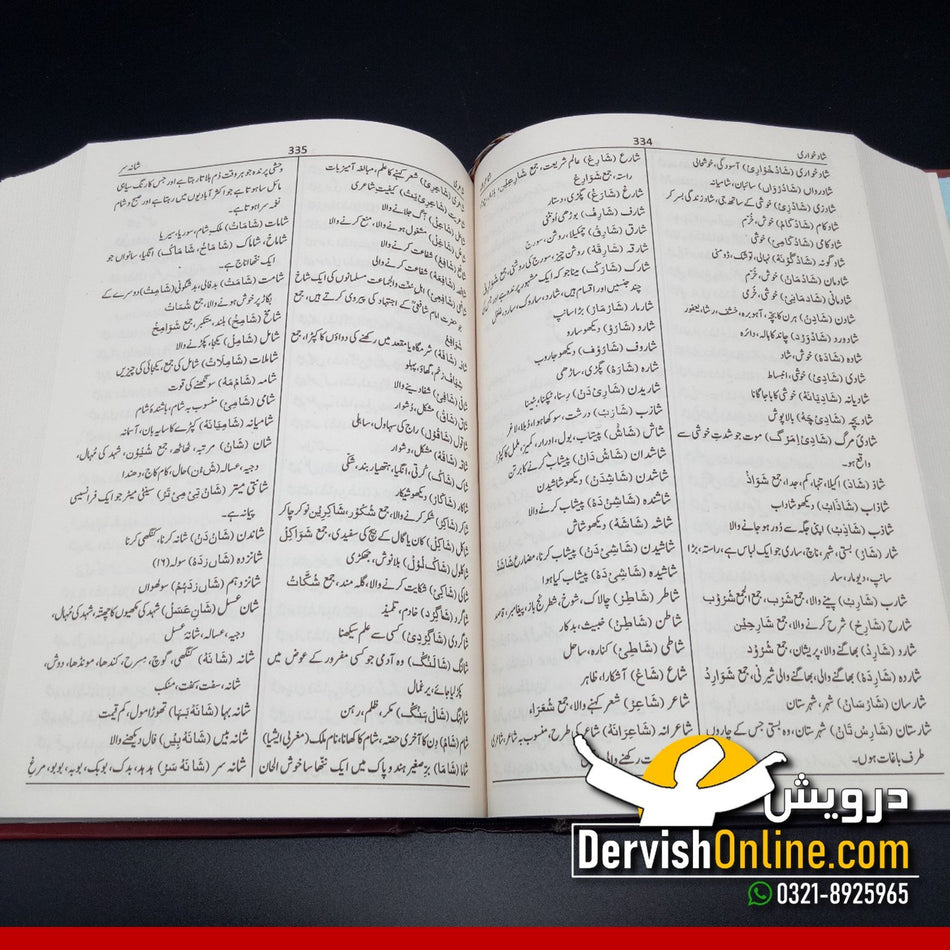 334
شاد خواری
شاد خواری (شَادْخْوَارِیْ) آسودگی، خوشحالی
شاد رواں (شَادُرْوَاں) سائبان، شامیانہ
شاد زی (شَادْزِیْ) خوشی کے ساتھ جی، شاد زندگی بسر کر
شاد کام (شَادْکَامْ) خوش، خُرّم
شاد کامی (شَادْکَامِیْ) خوشی
شاد گونہ (شَادْگُوْنَہْ) نہالی، توشک، ڈومنی
شادمان (شَادْمَانْ) خوش، خُرّم
شادمانی (شَادْمَانِیْ) خوشی، خُرّمی
شادن (شَادِنْ) ہرن کا بچّہ، آہو برہ، خشف، رشا، یعفور
شادورد (شَادْوَرْدْ) چاند کا ہالہ، دائرہ
شادہ (شَادَہْ) خوش، شاد
شادی (شَادِیْ) خوشی، انبساط
شادیانہ (شَادِیَانَہْ) خوشی کا باجا گانا
شادیچہ (شَادِیْ چَہْ) بالا پوش
شادیِ مرگ (شَادِیْ مَرْگْ) موت جو شدتِ خوشی سے
واقع ہو۔
شاذ (شَاذْ) اکیلا، تنہا، کم، جدا، جمع شَوَاذْ
شاذاب (شَاذَابْ) دیکھو شاداب
شاذب (شَاذِبْ) اپنی جگہ سے دُور ہو جانے والا
شار (شَارْ) بستی، شہر، ناچ، ساری جو ایک لباس ہے، راستہ، بڑا
سانپ، دیوار، سار
شارب (شَارِبْ) پینے والا، جمع شَرْب، جمع الجمع شُرُوْب
شارح (شَارِحْ) شرح کرنے والا، جمع شَارِحِیْن
شارد (شَارِدْ) بھاگنے والا، پریشان، جمع شُرُوْد
شاردہ (شَارِدَہْ) بھاگنے والی، بھاگنے والی شیرنی، جمع شَوَارِدْ
شارسان (شَارْسَانْ) شہر، شہرستان
شارستان (شَارِسْ تَانْ) شہرستان، وہ بستی جس کے چاروں
طرف باغات ہوں۔
شارع (شَارِعْ) عالمِ شریعت، جمع شَارِعِیْن
راستہ، جمع شَوَارِعْ
شارغ (شَارِغْ) پگڑی، دستار
شارف (شَارِفْ) بوڑھی اُونٹنی
شارق (شَارِقْ) چمکیلا، روشن، سورج
شارقہ (شَارِقَہْ) روشن چیز، سورج کی روشنی، جمع
شارک (شَارَکْ) مینا جو کہ ایک مشہور پرندہ ہے اور جس کی
چند جنسیں اور اقسام ہیں، شارو، سارو، سارک
شارمار (شَارْمَارْ) بڑا سانپ
شارو (شَارُوْ) دیکھو سارو
شاروف (شَارُوْفْ) دیکھو جاروب
شارہ (شَارَہْ) پگڑی، ساڑھی
شاریدن (شَارِیْدَنْ) بہنا، ٹپکنا، ٹہنا
شازب (شَازِبْ) درشت، سوکھا ہوا، دُبلا، لاغر
شاش (شَاشْ) پیشاب، بول، ادرار، کمیز
شاشدان (شَاشْ دَانْ) پیشاب کرنے کا برتن
شاشدن (شَاشِدَنْ) دیکھو شاشیدن
شاشندہ (شَاشِنْدَہْ) پیشاب کرنے والا
شاشہ (شَاشَہْ) دیکھو شاش
شاشیدن (شَاشِیْدَنْ) پیشاب کرنا، مضارع شَاشَدْ
شاشیدہ (شَاشِیْ دَہْ) پیشاب کیا ہوا
شاطر (شَاطِرْ) چالاک، شوخ، شطرنج باز، پیغامبر، قاصد
شاطن (شَاطِنْ) خبیث، بدکار
شاطی (شَاطِیْ) کنارہ، ساحل
شاع (شَاعْ) آشکارا، ظاہر
شاعر (شَاعِرْ) شعر کہنے والا، جمع شُعَرَاء
شاعرانہ (شَاعِرَانَہْ) شاعر کی طرح، منسوب بہ شاعر، شاعری
رکھنے والا
335
شانہ سر
(شَاعِرِیْ) شعر کہنے کا علم، مبالغہ آمیز بات
کیفیتِ شاعری
آگ جلانے والا
مشغول ہونے والا، منع کرنے والا
شفاعت کرنے والا
شفاعت کرنے والی
اہلِ سنت والجماعت مسلمانوں کی ایک شاخ
جو حضرت امام شافعیؒ کے اجتہاد کی پیروی کرتی ہیں، جمع
شَوَافِعْ
شافہ (شَافَہْ) شرمگاہ یا مقعد میں رکھنے کی دواؤں کا کپڑا، جمع
شِیَاف، زخم، گھاؤ، پہلو
شافی (شَافِیْ) شفا دینے والا
شاق (شَاقْ) مشکل، دُشوار
شاقول (شَاقُوْلْ) راج کی ساہول، ساہلی
شاقہ (شَاقَّہْ) مشکل، دُشوار
شاک (شَاکْ) کُرتی، انگیا، ہتھیار بند، شکّی
شاکار (شَاکَارْ) دیکھو شیکار
شاکر (شَاکِرْ) شکر کرنے والا، جمع شَکُوْر، شَاکِرِیْن نوکر چاکر
شاکل (شَاکِلْ) کان یا گال کے بیچ کی سفیدی، جمع شَوَاکِلْ
شاکلول (شَاکْ لُوْلْ) بلا نوش، جھکڑی
شاکی (شَاکِیْ) شکایت کرنے والا، گلہ مند، جمع شُکَّاتْ
شاگرد (شَاگِرْدْ) خادم، تلمیذ
شاگردی (شَاگِرْدِیْ) کسی سے علم سیکھنا
شالنگ (شَالَنْگْ) وہ آدمی جو کسی مفرور کے عوض میں
پکڑا جائے، یرغمال
شالہنگ (شَالْ ہَنْگْ) مکر، ظلم، رہن
شام (شَامْ) دن کا آخری حصّہ، شام کا کھانا، نام ملک (مغربی ایشیا)
شاما (شَامَا) برصغیر ہند و پاک میں ایک ننھا سا خوش الحان
وحشی پرندہ جو ہر وقت دُم ہلاتا رہتا ہے اور جس کا رنگ سیاہی
مائل سا ہوتا ہے جو اکثر آبادیوں میں رہتا ہے اور صبح و شام
نغمہ سرا ہوتا ہے۔
شامات (شَامَاتْ) ملک شام، سوریا، سیریا
شاماخ، شاماک (شَامَاخْ، شَامَاکْ) انگیا، سانواں جو
ایک ننھا اناج ہے۔
شامت (شَامَتْ) بدفالی، بدشگونی (شَامِتْ) دوسرے کے
بگاڑ پر خوش ہونے والا، جمع شُمَّاتْ
شامخ (شَامِخْ) بلند، متکبر، جمع شَوَامِخْ
شامل (شَامِلْ) یکجا، پکڑنے والا
شاملات (شَامِلَاتْ) شامل کی جمع، یکجائی کی چیزیں
شامہ (شَامَّہْ) سونگھنے کی قوت
شامی (شَامِیْ) منسوب بہ شام، باشندۂ شام
شامیانہ (شَامِیَانَہْ) کپڑے کا سایہ بان، آسمانہ
شان (شَانْ) مرتبہ، ٹھاٹھ، جمع شُیُوْن، شہد کی مہال،
وجیہ، عسالہ (شَ نْ) حال، کام کاج، دھندا
شانتی میتر (شَانْ تِیْ مِیْ تَرْ) سینٹی میٹر جو ایک فرانسیسی
پیمانہ ہے۔
شاندن (شَانْدَنْ) شانہ کرنا، کنگھی کرنا
شانزدہ (شَانْ زَدَہْ) سولہ (۱۶)
شانزدہم (شَانْ زَدَہُمْ) سولھواں
شان عسل (شَانِ عَسَلْ) شہد کی مکھیوں کا چھتّہ، شہد کی مُہال،
وجیہ، عسالہ، شانۂ عسل
شانہ (شَانَہْ) کنگھی، گوچ، سرح، کندھا، مونڈھا، دوش،
شانہ، سفت، کفت، منکب
شانہ بہا (شَانَہْ بَہَا) تھوڑا مول، کم قیمت
شانہ بیں (شَانَہْ بِیْں) فال دیکھنے والا
شانہ سر (شَانَہْ سَرْ) ہدہد، بدک، بوبک، بوبہ، بوبو، مرغ
درویش
DervishOnline.com
0321-8925965